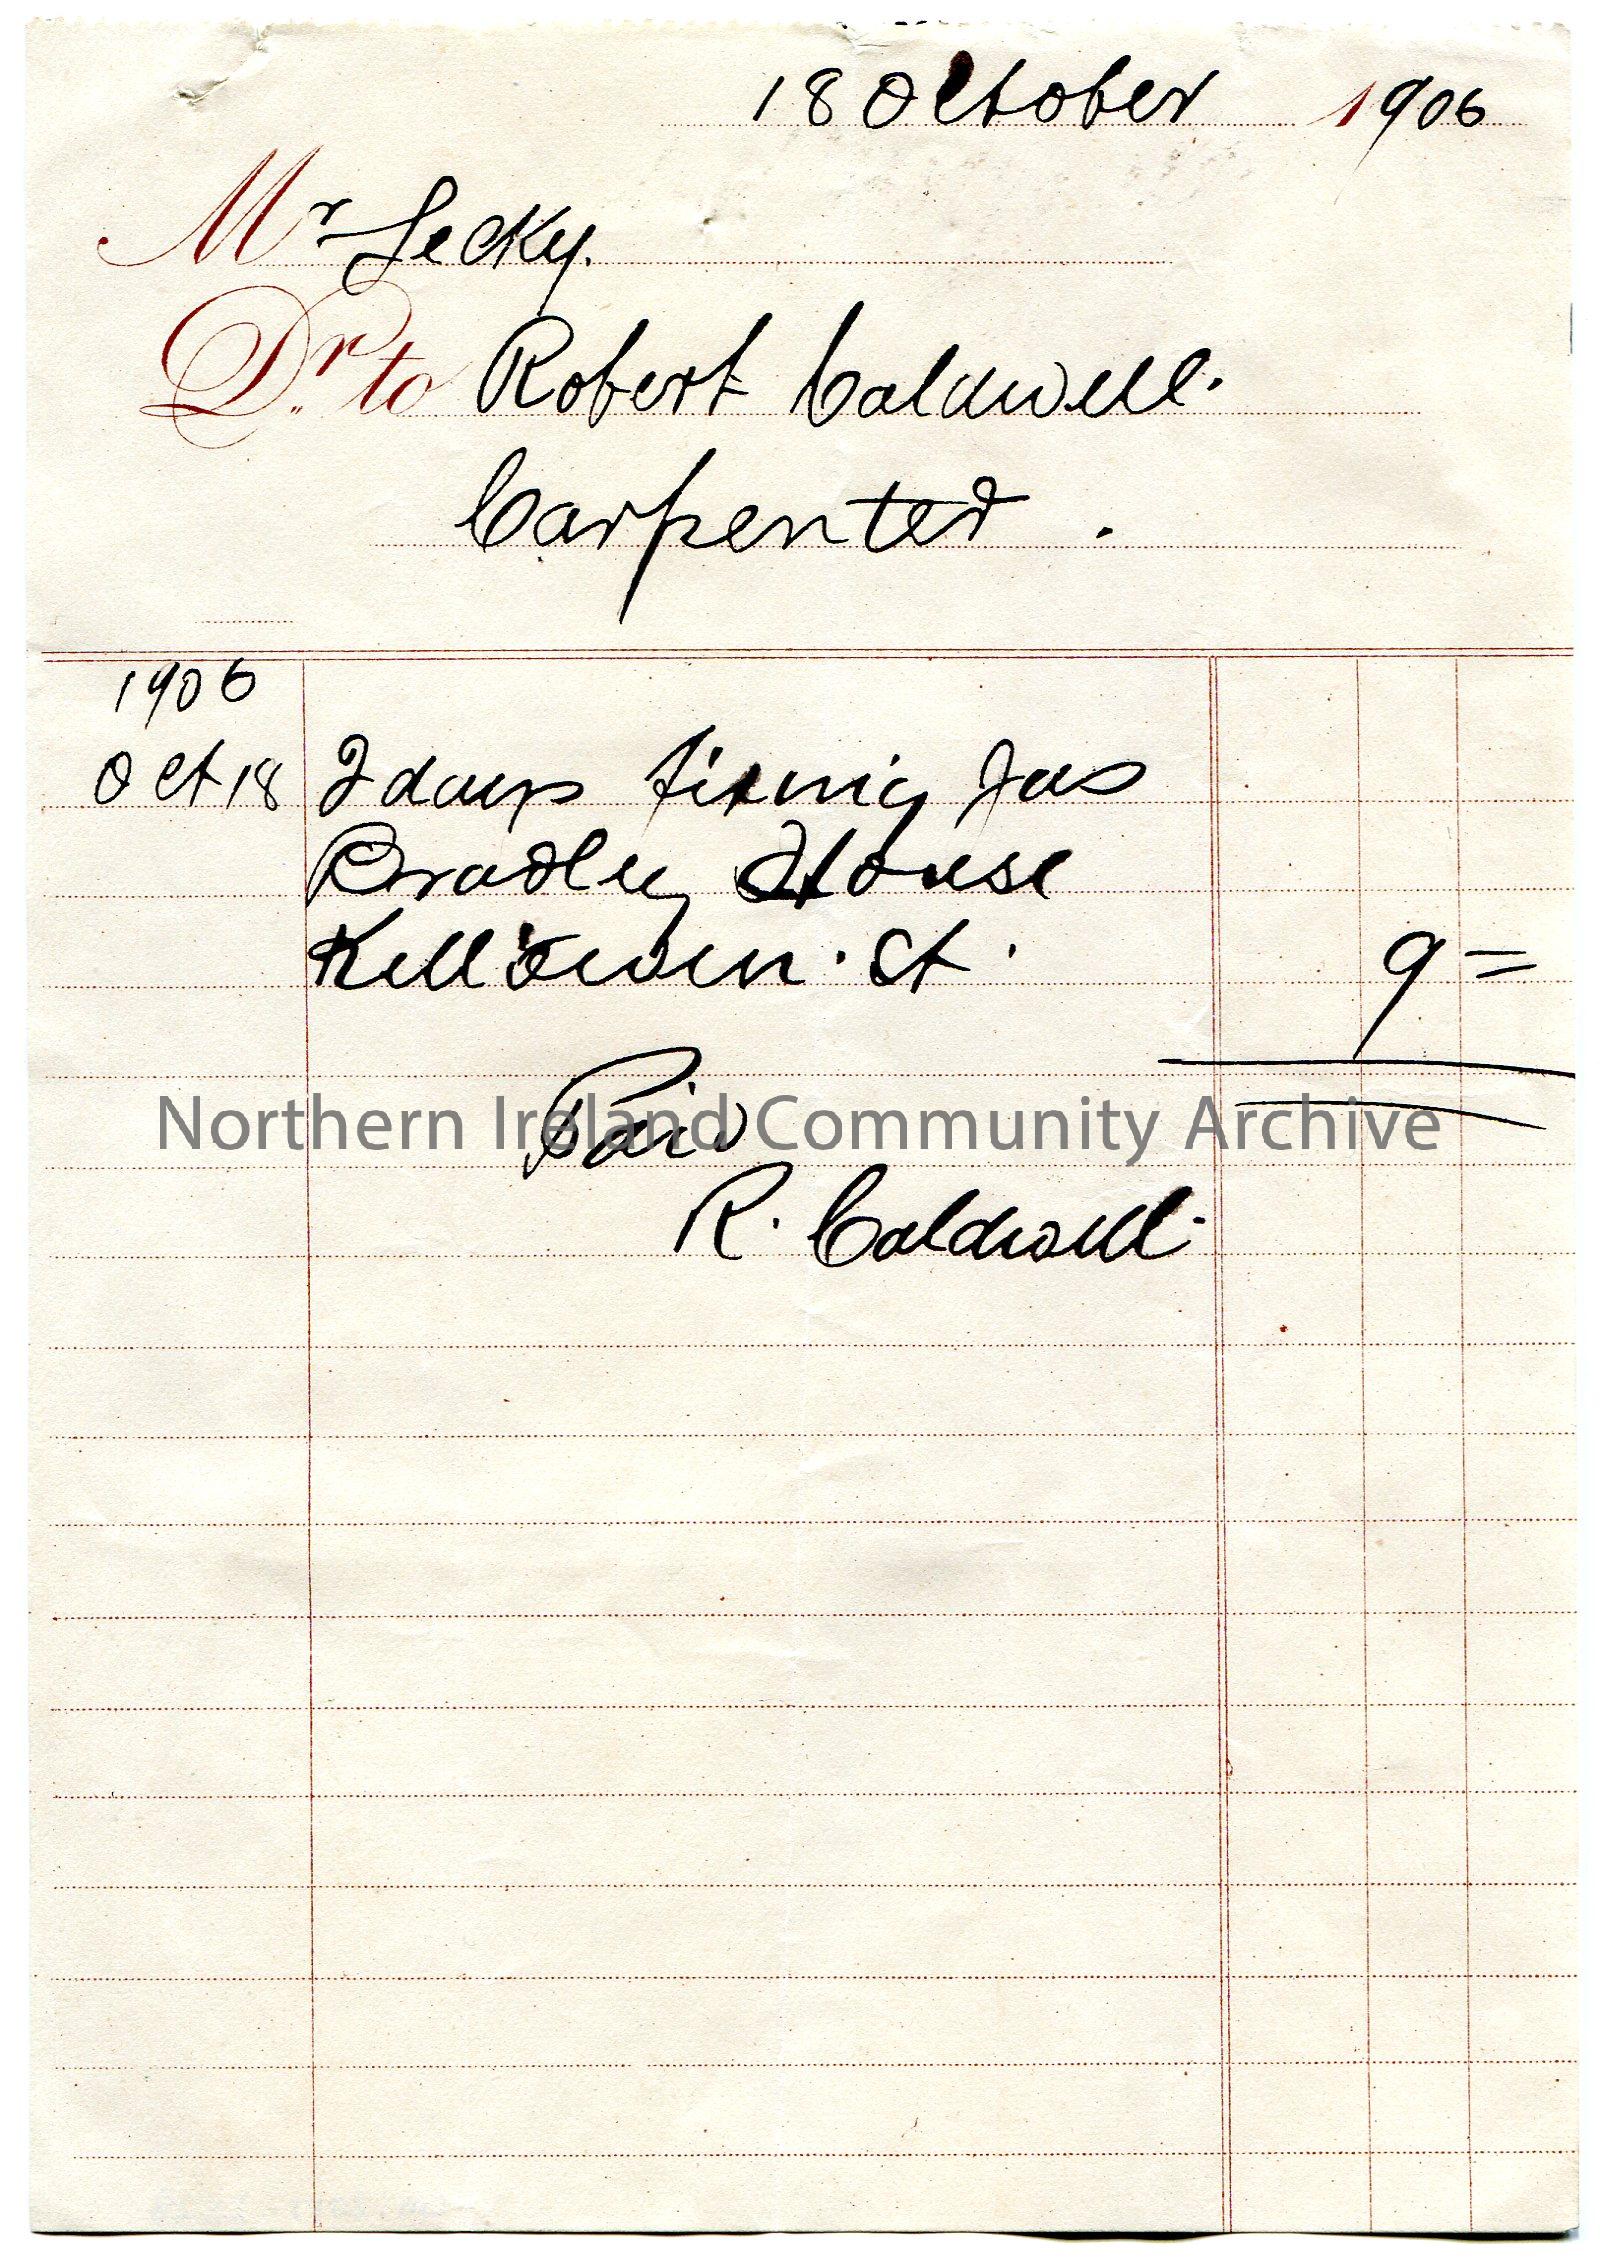 18 October 1906
Mr Lecky.
Dr. to Robert Caldwell.
Carpenter.
1906
Oct 18 2 days fixing Jas
Bradley House
Kellowen. St. 9 =
Paid
Northern Ireland Community Archive
R. Caldwell